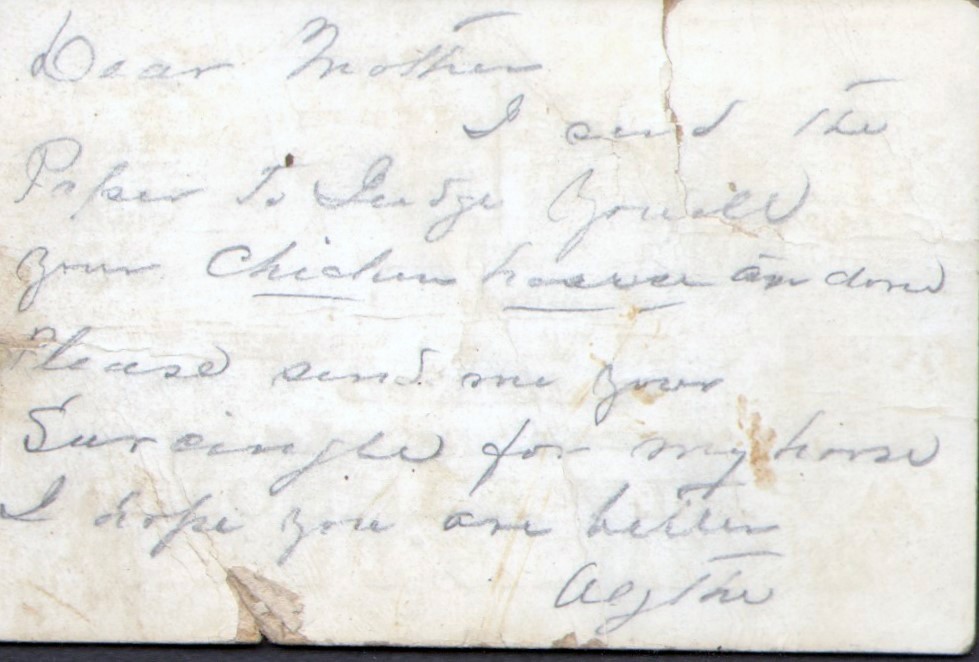 Dear Mother
I send the
Paper to Judge
your Chicken houses are done
Please send me your
Surcingle for my horse
I hope you are better